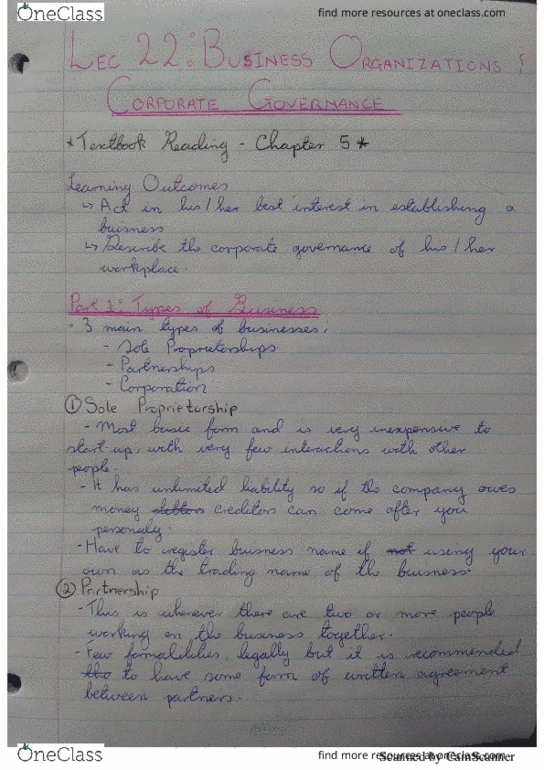 OneClass
find more resources at oneclass.com
LEC 22: BUSINESS ORGANIZATIONS &
CORPORATE GOVERNANCE
*Textbook Reading - Chapter 5*
Learning Outcomes
↳ Act in his/her best interest in establishing a
buisness
↳ Describe the corporate governance of his/her
workplace.
Part 1: Types of Business
· 3 main types of businesses:
- Sole Proprietorships
- Partnerships
- Corporation
① Sole Proprietorship
- Most basic form and is very inexpensive to
start-up, with very few interactions with other
people.
- It has unlimited liability so if the company owes
money debtors creditors can come after you
personaly.
- Have to register buisness name if not using your
own as the trading name of the buisness.
② Partnership
- This is whenever there are two or more people
working on the business together.
- Few formalilities, legally but it is recommended
tho to have some form of written agreement
between partners.
OneClass
find more resources at oneclass.com
Scanned by CamScanner